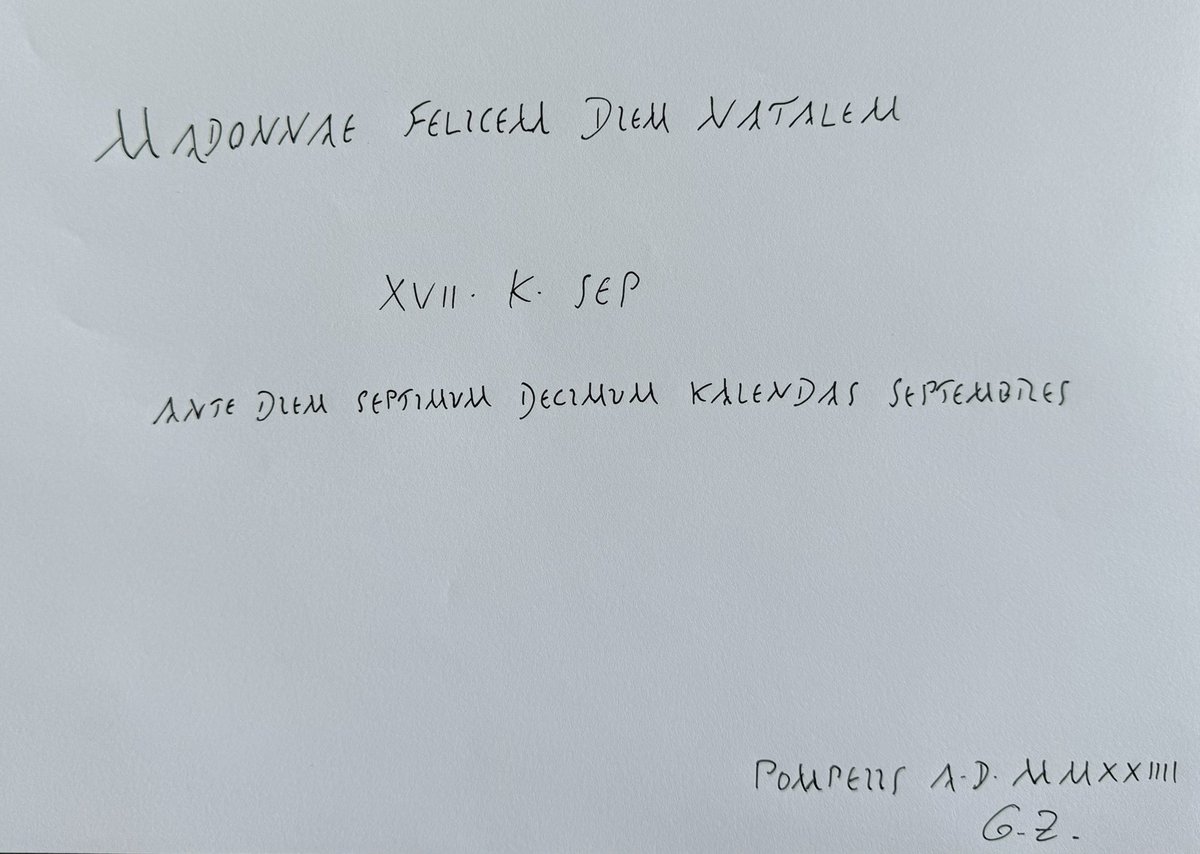 MADONNAE FELICEM DIEM NATALEM
XVII. K. SEP
ANTE DIEM SEPTIMUM DECIMUM KALENDAS SEPTEMBRES
POMPEIIS A.D. MMXXIIII
G.Z.